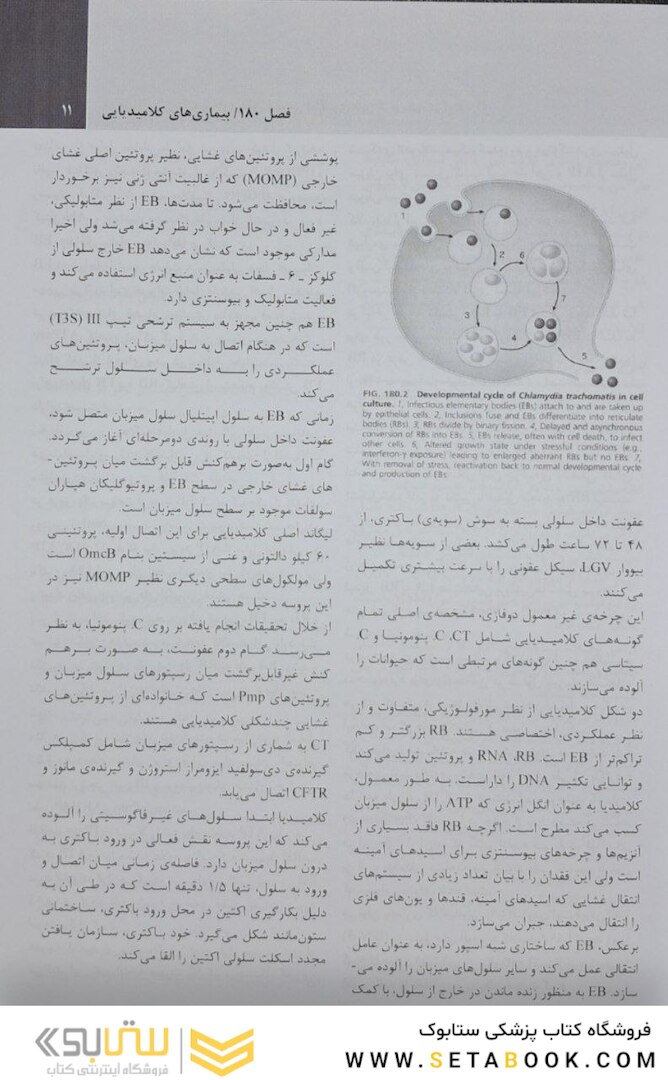 فصل ۱۸۰/ بیماری‌های کلامیدیایی
۱۱
1
2
6
3
7
4
5
FIG. 180.2 Developmental cycle of Chlamydia trachomatis in cell
culture. 1, Infectious elementary bodies (EBs) attach to and are taken up
by epithelial cells. 2, Inclusions fuse and EBs differentiate into reticulate
bodies (RBs). 3, RBs divide by binary fission. 4, Delayed and asynchronous
conversion of RBs into EBs. 5, EBs release, often with cell death, to infect
other cells. 6, Altered growth state under stressful conditions (e.g.,
interferon-γ exposure) leading to enlarged aberrant RBs but no EBs. 7,
With removal of stress, reactivation back to normal developmental cycle
and production of EBs.
عفونت داخل سلولی بسته به سوش (سویه‌ی) باکتری، از
۴۸ تا ۷۲ ساعت طول می‌کشد. بعضی از سویه‌ها نظیر
بیووار LGV، سیکل عفونی را با سرعت بیشتری تکمیل
می‌کنند.
این چرخه‌ی غیر معمول دوفازی، مشخصه‌ی اصلی تمام
گونه‌های کلامیدیایی شامل C ،CT. پنومونیا و C.
سیتاسی هم چنین گونه‌های مرتبطی است که حیوانات را
آلوده می‌سازند.
دو شکل کلامیدیایی از نظر مورفولوژیکی، متفاوت و از
نظر عملکردی، اختصاصی هستند. RB بزرگتر و کم
تراکم‌تر از EB است. RNA ،RB و پروتئین تولید می‌کند
و توانایی تکثیر DNA را داراست. به طور معمول،
کلامیدیا به عنوان انگل انرژی که ATP را از سلول میزبان
کسب می‌کند مطرح است. اگرچه RB فاقد بسیاری از
آنزیم‌ها و چرخه‌های بیوسنتزی برای اسیدهای آمینه
است ولی این فقدان را با بیان تعداد زیادی از سیستم‌های
انتقال غشایی که اسیدهای آمینه، قندها و یون‌های فلزی
را انتقال می‌دهند، جبران می‌سازد.
برعکس، EB که ساختاری شبه اسپور دارد، به عنوان عامل
انتقالی عمل می‌کند و سایر سلول‌های میزبان را آلوده می-
سازد. EB به منظور زنده ماندن در خارج از سلول، با کمک
پوششی از پروتئین‌های غشایی، نظیر پروتئین اصلی غشای
خارجی (MOMP) که از غالبیت آنتی ژنی نیز برخوردار
است، محافظت می‌شود. تا مدت‌ها، EB از نظر متابولیکی،
غیر فعال و در حال خواب در نظر گرفته می‌شد ولی اخیرا
مدارکی موجود است که نشان می‌دهد EB خارج سلولی از
گلوکز ـ ۶ ـ فسفات به عنوان منبع انرژی استفاده می‌کند و
فعالیت متابولیک و بیوسنتزی دارد.
EB هم چنین مجهز به سیستم ترشحی تیپ III (T3S)
است که در هنگام اتصال به سلول میزبان، پروتئین‌های
عملکردی را به داخل سلول ترشح
می‌کند.
زمانی که EB به سلول اپیتلیال سلول میزبان متصل شود،
عفونت داخل سلولی با روندی دومرحله‌ای آغاز می‌گردد.
گام اول به‌صورت برهم‌کنش قابل برگشت میان پروتئین-
های غشای خارجی در سطح EB و پروتیوگلیکان هپاران
سولفات موجود بر سطح سلول میزبان است.
لیگاند اصلی کلامیدیایی برای این اتصال اولیه، پروتئینی
۶۰ کیلو دالتونی و غنی از سیستئین بنام OmcB است
ولی مولکول‌های سطحی دیگری نظیر MOMP نیز در
این پروسه دخیل هستند.
از خلال تحقیقات انجام یافته بر روی C. پنومونیا، به نظر
می‌رسد گام دوم عفونت، به صورت برهم
کنش غیرقابل‌برگشت میان رسپتورهای سلول میزبان و
پروتئین‌های Pmp است که خانواده‌ای از پروتئین‌های
غشایی چندشکلی کلامیدیایی هستند.
CT به شماری از رسپتورهای میزبان شامل کمپلکس
گیرنده‌ی دی‌سولفید ایزومراز استروژن و گیرنده‌ی مانوز و
CFTR اتصال می‌یابد.
کلامیدیا ابتدا سلول‌های غیرفاگوسیتی را آلوده
می‌کند که این پروسه نقش فعالی در ورود باکتری به
درون سلول میزبان دارد. فاصله‌ی زمانی میان اتصال و
ورود به سلول، تنها ۱/۵ دقیقه است که در طی آن به
دلیل بکارگیری اکتین در محل ورود باکتری، ساختمانی
ستون‌مانند شکل می‌گیرد. خود باکتری، سازمان یافتن
مجدد اسکلت سلولی اکتین را القا می‌کند.
فروشگاه کتاب پزشکی ستابوک
WWW.SETABOOK.COM
ستابوک
فروشگاه اینترنتی کتاب